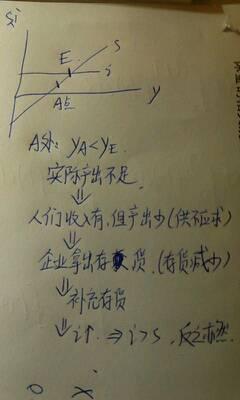 si
E
s
i
A点
y
A处: yA<yE.
实际产出不足
⇓
人们收入有,但产出少(供不应求)
⇓
企业拿出存货.(存货减少)
⇓
补充存货
⇓
i↑. ⇒ i>s, 反之亦然.